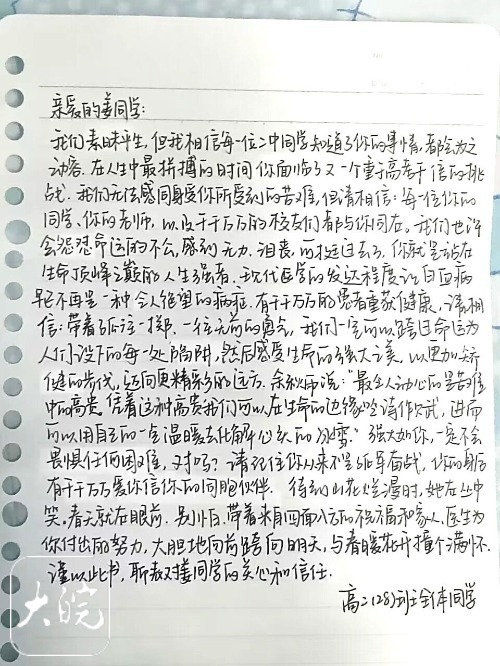 亲爱的姜同学:
我们素昧平生,但我相信每一位二中同学知道了你的事情,都会为之
动容.在人生中最拼搏的时间你面临了又一个重于高考千倍的挑
战.我们无法感同身受你所受到的苦难,但请相信:每一位你的
同学、你的老师,以及千千万万的校友们都与你同在。我们也许
会怨怼命运的不公,感到无力、沮丧,而挺过去了,你就是站在
生命顶峰之巅的人生强者.现代医学的发达程度让白血病
早已不再是一种令人绝望的病症.有千千万万的患者重获健康,请相
信:带着孤注一掷、一往无前的勇气,我们一定可以跨过命运为
人们设下的每一处陷阱,然后感受生命的强大之美,以更加矫
健的步伐,迈向更精彩的远方.余秋雨说:"最动人心的是苦难
中的高贵,凭着这种高贵我们可以在生命的边缘吟诗作赋,进而
可以用自己的一点温暖去化解心头的冰雪."强大如你,一定不会
畏惧任何困难,对吗?请记住你从来不是孤军奋战,你的身后
有千千万万爱你信你的同胞伙伴.待到山花烂漫时,她在丛中
笑.春天就在眼前.别怕.带着来自四面八方的祝福和家人、医生为
你付出的努力,大胆地向前跨向明天,与春暖花开撞个满怀.
谨以此书,聊表对姜同学的关心和信任.
高二(28)班全体同学
大皖